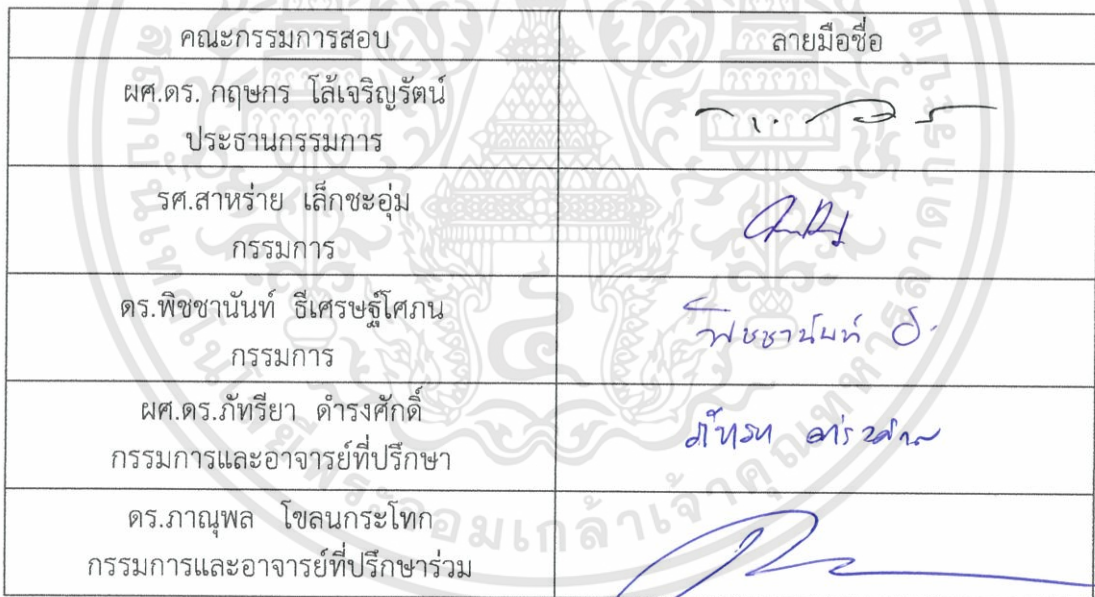 คณะกรรมการสอบ ลายมือชื่อ
ผศ.ดร. กฤษกร โล้เจริญรัตน์
ประธานกรรมการ
รศ.สาหร่าย เล็กชะอุ่ม
กรรมการ
ดร.พิชชานันท์ ธีเศรษฐ์โศภน
กรรมการ
พิชชานันท์ ธ.
ผศ.ดร.ภัทรียา ดำรงศักดิ์
กรรมการและอาจารย์ที่ปรึกษา
ดร.ภาณุพล โขลนกระโทก
กรรมการและอาจารย์ที่ปรึกษาร่วม